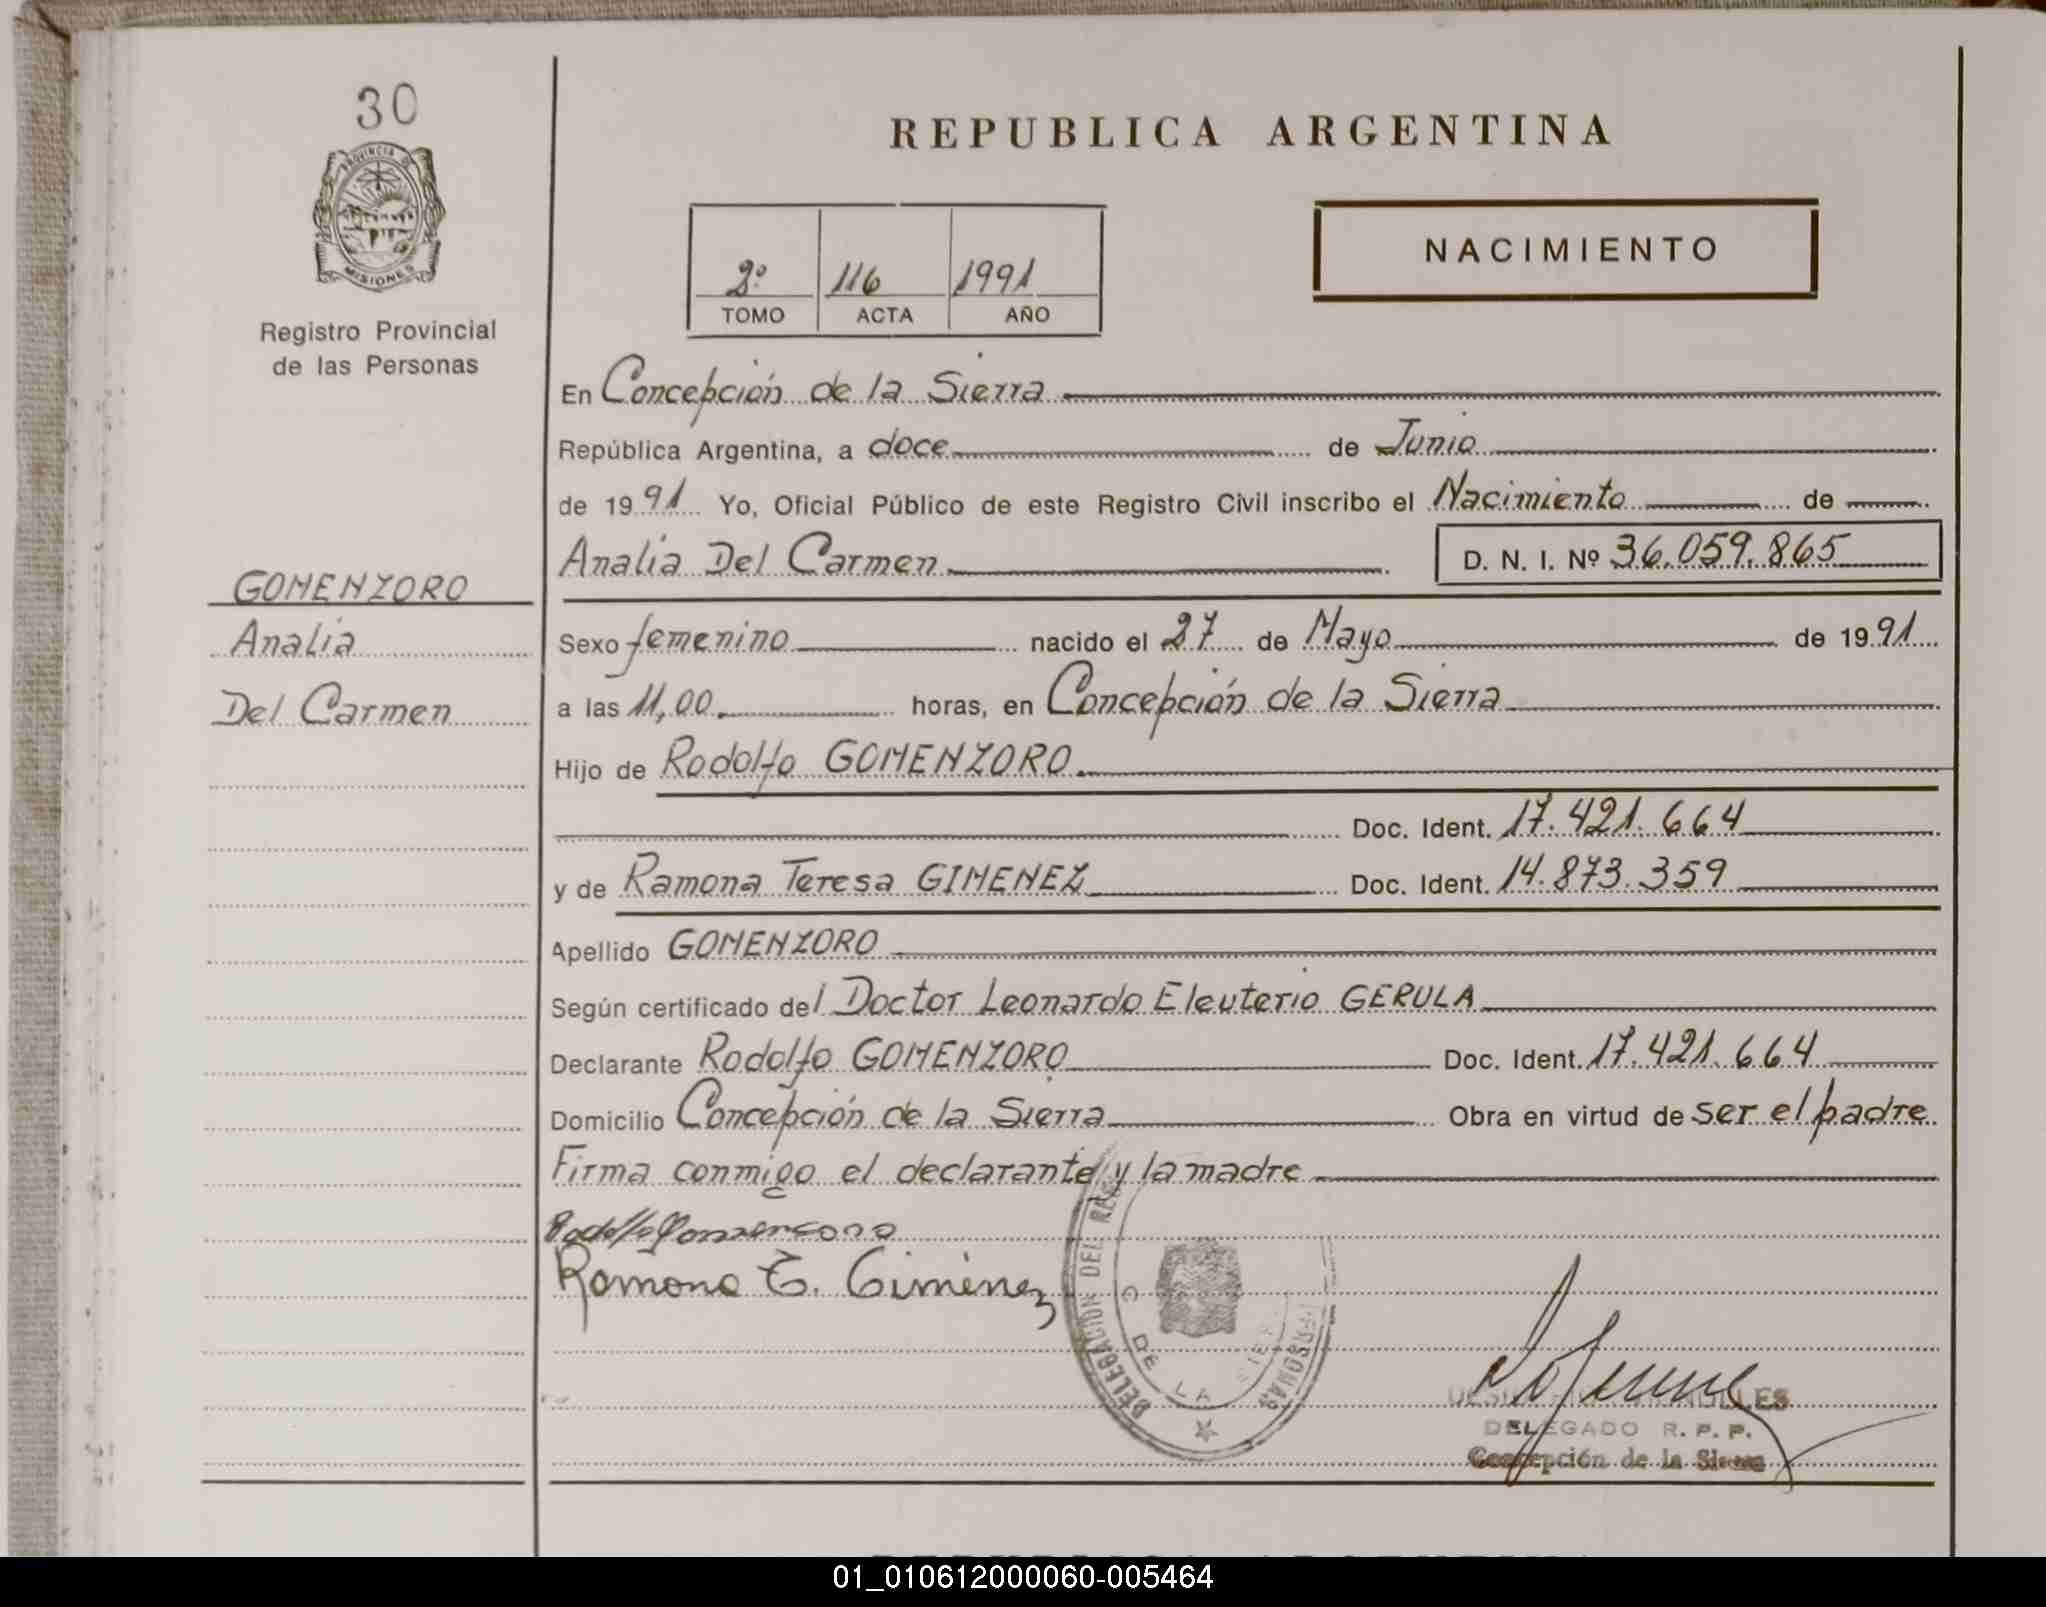 30
PROVINCIA DE
MISIONES
Registro Provincial
de las Personas
GOMENZORO
Analia
Del Carmen
REPUBLICA ARGENTINA
NACIMIENTO
2º 116 1991
TOMO ACTA AÑO
En Concepción de la Sierra
República Argentina, a doce de Junio
de 1991 Yo, Oficial Público de este Registro Civil inscribo el Nacimiento de
Analia Del Carmen D. N. I. Nº 36.059.865
Sexo femenino nacido el 27 de Mayo de 1991
a las 11,00 horas, en Concepción de la Sierra
Hijo de Rodolfo GOMENZORO
Doc. Ident. 17.421.664
y de Ramona Teresa GIMENEZ Doc. Ident. 14.873.359
Apellido GOMENZORO
Según certificado del Doctor Leonardo Eleuterio GERULA
Declarante Rodolfo GOMENZORO Doc. Ident. 17.421.664
Domicilio Concepción de la Sierra Obra en virtud de ser el padre
Firma conmigo el declarante y la madre
Ramona T. Giménez
DELEGACION DEL REG PERSONAS
C DE LA SIER
DELEGADO R. P. P.
Concepción de la Sierra
01_010612000060-005464